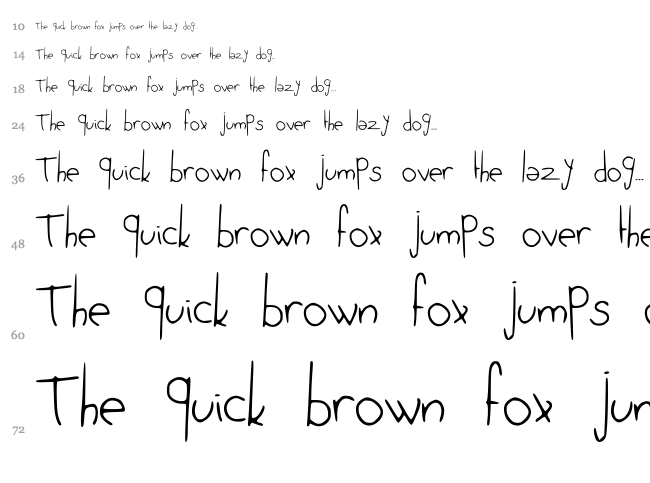 10 The quick brown fox jumps over the lazy dog...
14 The quick brown fox jumps over the lazy dog...
18 The quick brown fox jumps over the lazy dog...
24 The quick brown fox jumps over the lazy dog...
36 The quick brown fox jumps over the lazy dog...
48 The quick brown fox jumps over the
60 The quick brown fox jumps o
72 The quick brown fox jum